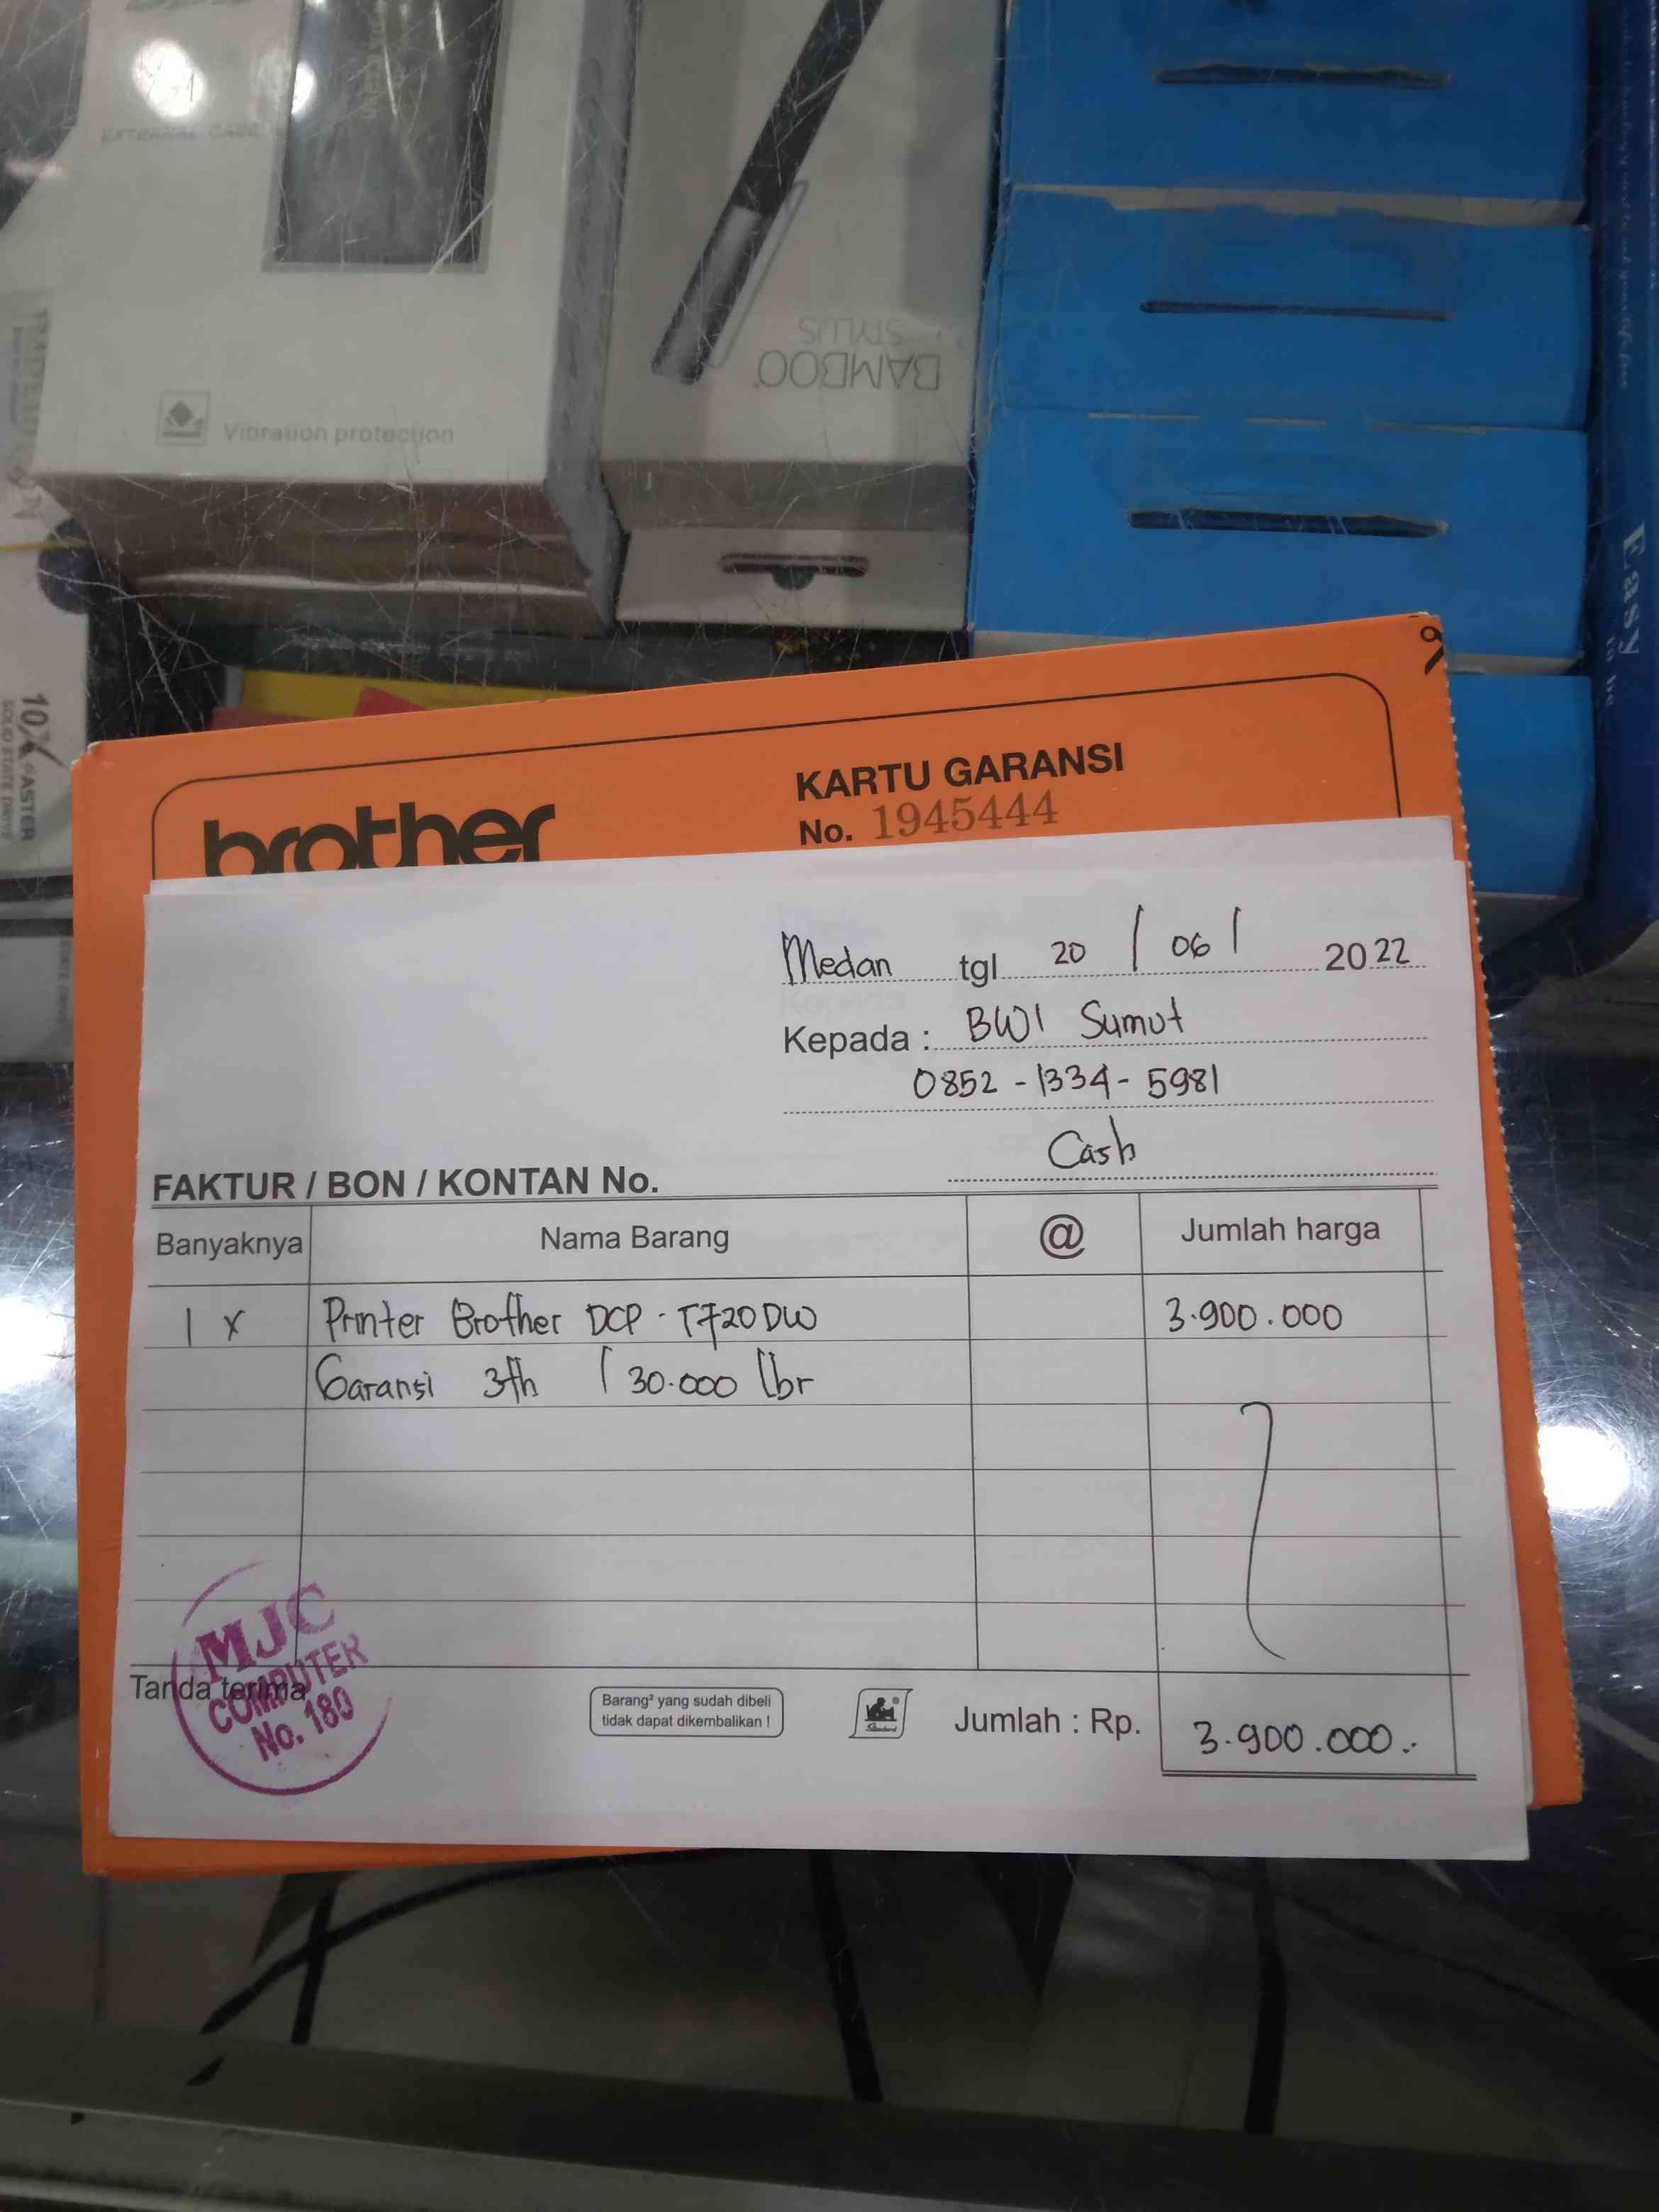 EXTERNAL CASE
Vibration protection
BAMBOO
STYLUS
10X FASTER
SOLID STATE DRIVE
Easy
to be
brother
KARTU GARANSI
No. 1945444
Medan tgl 20 / 06 / 2022
Kepada : BWI Sumut
0852 - 1334 - 5981
Cash
FAKTUR / BON / KONTAN No.
Banyaknya Nama Barang @ Jumlah harga
1 x Printer Brother DCP - T720DW 3.900.000
Garansi 3th / 30.000 lbr
MJC
COMPUTER
No. 180
Tanda terima
Barang² yang sudah dibeli
tidak dapat dikembalikan !
Standard
Jumlah : Rp. 3.900.000.-